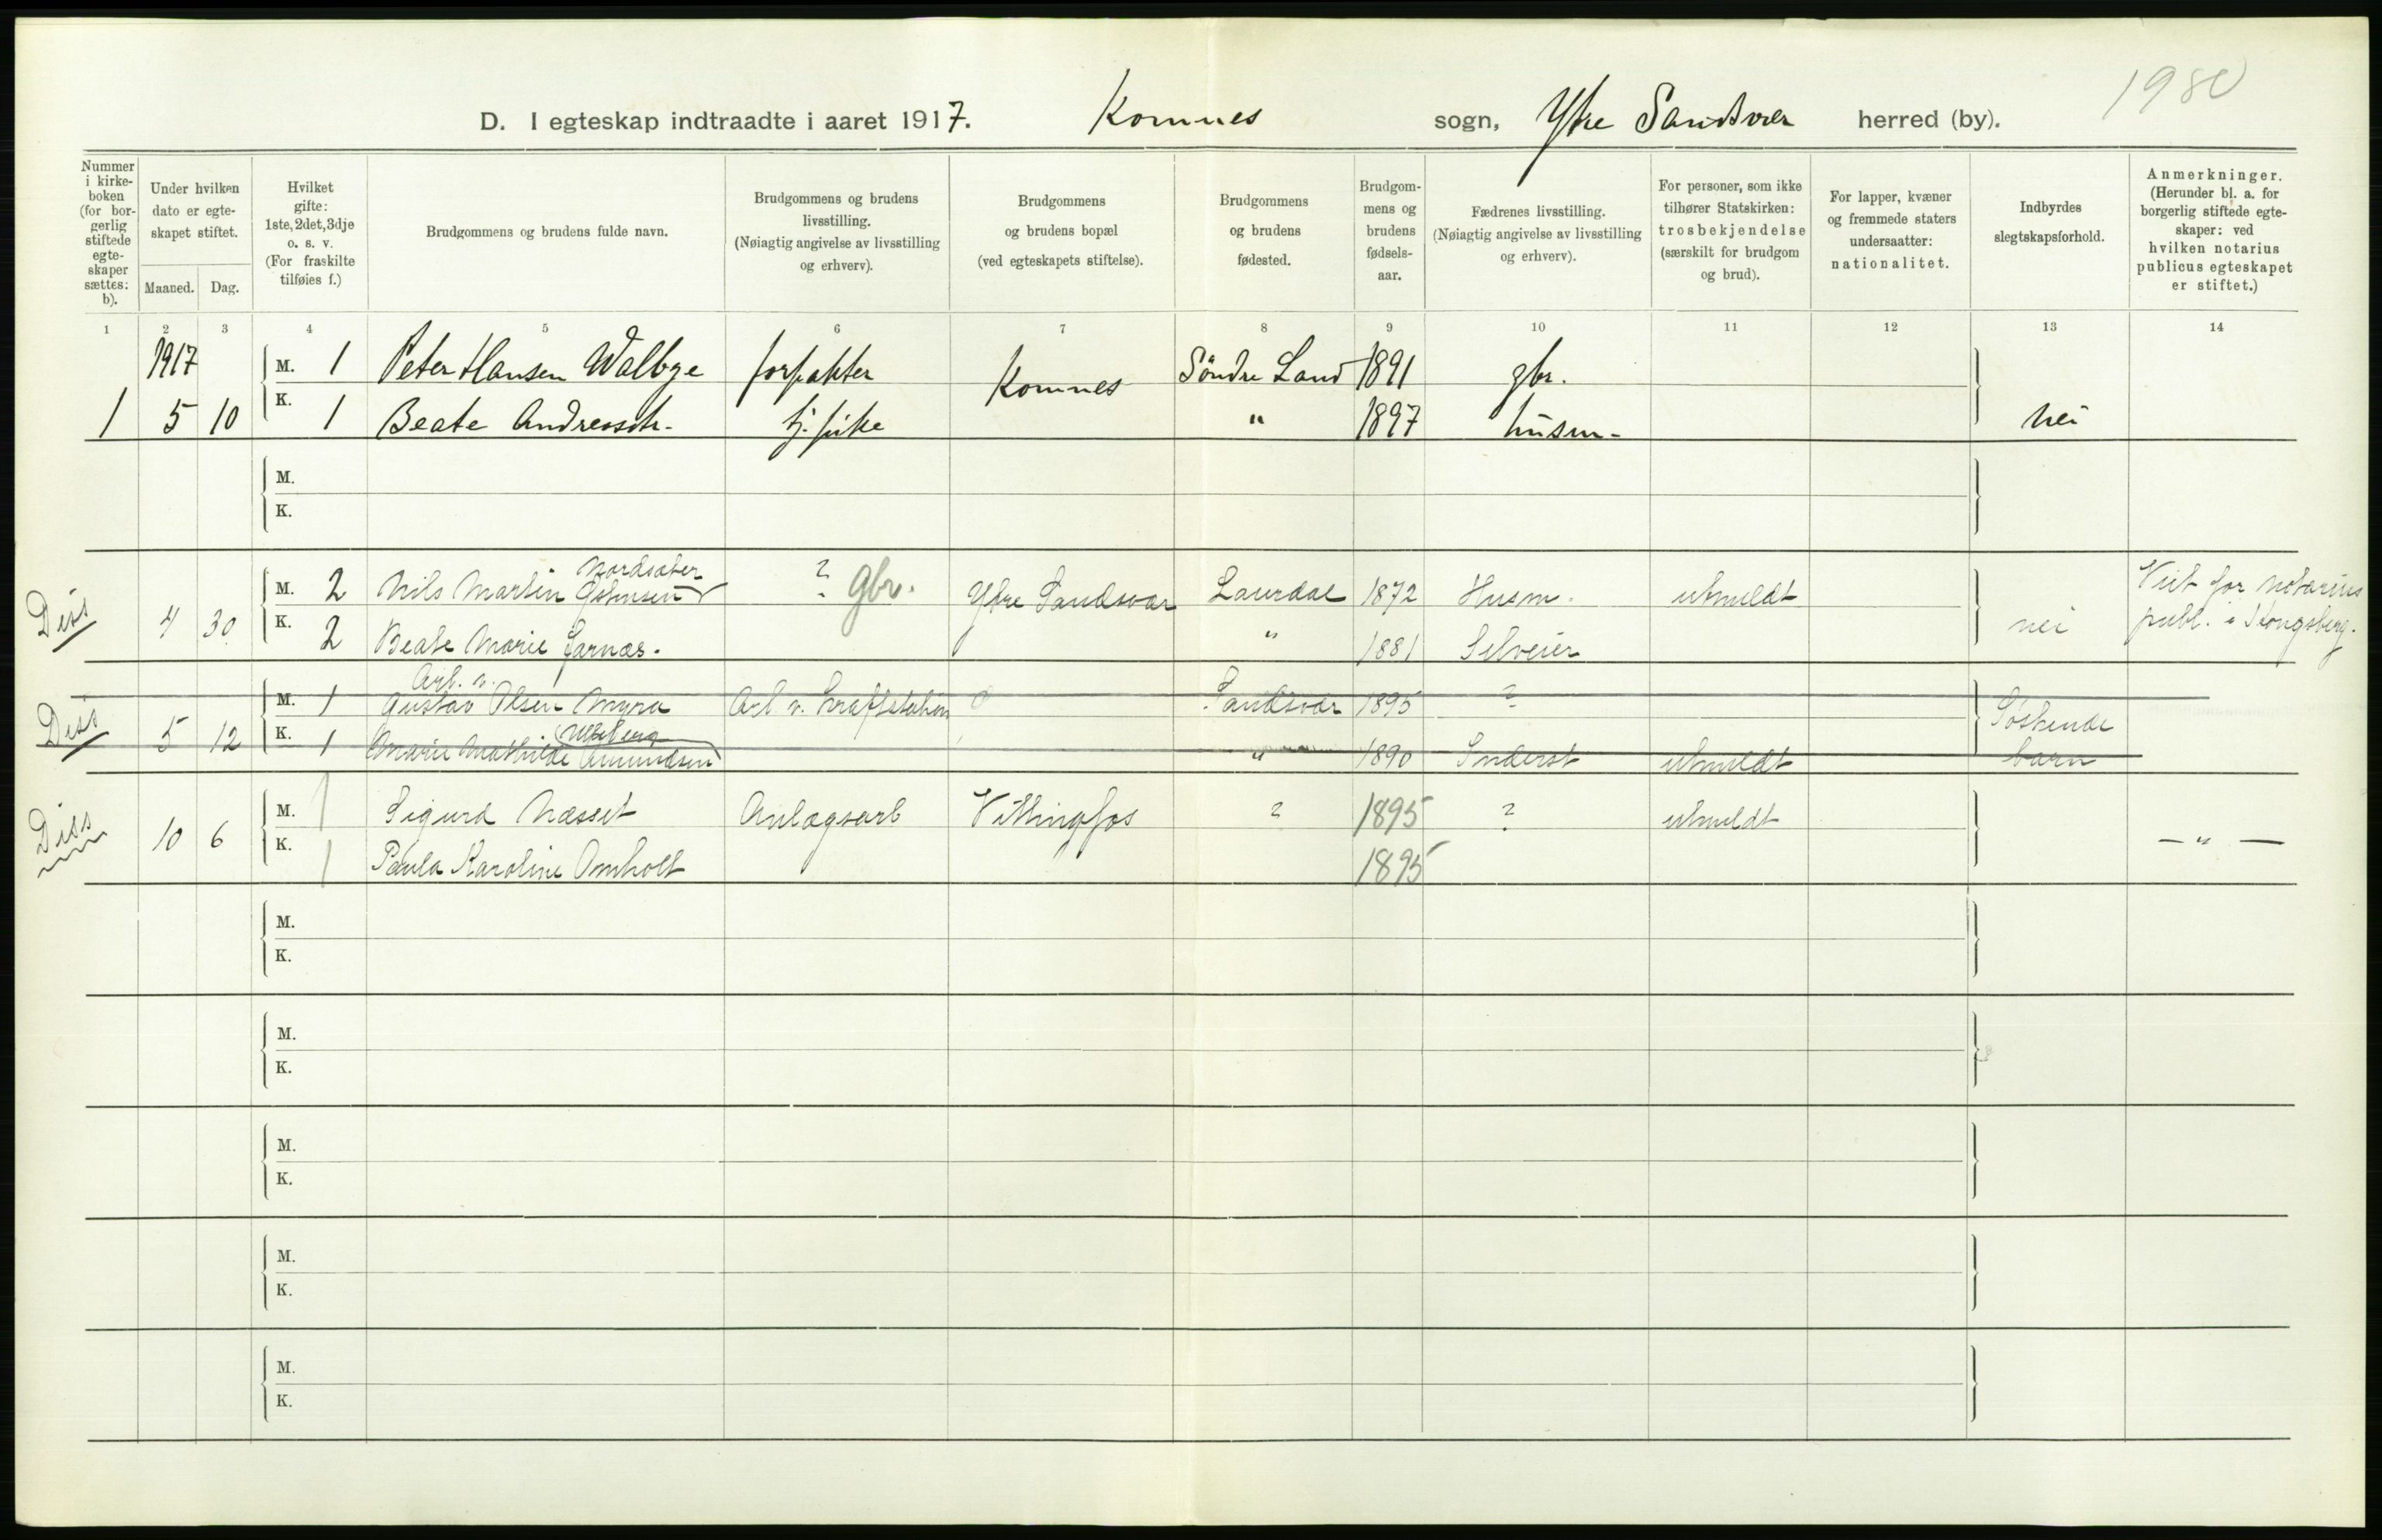 1980
D. I egteskap indtraadte i aaret 1917. Komnes sogn, Ytre Sandsvær herred (by).
Nummer i kirke-boken (for bor-gerlig stiftede egte-skaper sættes: b).
Under hvilken dato er egte-skapet stiftet.
Maaned. Dag.
Hvilket gifte: 1ste, 2det, 3dje o. s. v. (For fraskilte tilføies f.)
Brudgommens og brudens fulde navn.
Brudgommens og brudens livsstilling. (Nøiagtig angivelse av livsstilling og erhverv).
Brudgommens og brudens bopæl (ved egteskapets stiftelse).
Brudgommens og brudens fødested.
Brudgom-mens og brudens fødsels-aar.
Fædrenes livsstilling. (Nøiagtig angivelse av livsstilling og erhverv).
For personer, som ikke tilhører Statskirken: trosbekjendelse (særskilt for brudgom og brud).
For lapper, kvæner og fremmede staters undersaatter: nationalitet.
Indbyrdes slegtskapsforhold.
Anmerkninger. (Herunder bl. a. for borgerlig stiftede egte-skaper: ved hvilken notarius publicus egteskapet er stiftet.)
1 2 3 4 5 6 7 8 9 10 11 12 13 14
1917 M. 1 Peter Hansen Walbye forpakter Komnes Söndre Land 1891 gbr.
1 5 10 K. 1 Beate Andreasdtr. tj. pike " 1897 husm. nei
M.
K.
Nordsæter
Diss 4 30 M. 2 Nils Martin Johnsen ? gbr. Ytre Sandsvær Laurdal 1872 Husm. utmeldt Viet for notarius
K. 2 Beate Marie Jarnæs. " 1881 Selveier nei publ. i Kongsberg.
Arb. v.
Diss 5 12 M. 1 Gustav Olsen Myra Arb v. kraftstation Sandsvær 1895 ? Söskende
K. 1 Marie Mathilde Amundsen " 1890 Inderst utmeldt barn
Diss 10 6 M. 1 Sigurd Næsset Anlægsarb Vittingfos ? 1895 ? utmeldt — " —
K. 1 Paula Karoline Omholt 1895
M.
K.
M.
K.
M.
K.
M.
K.
M.
K.